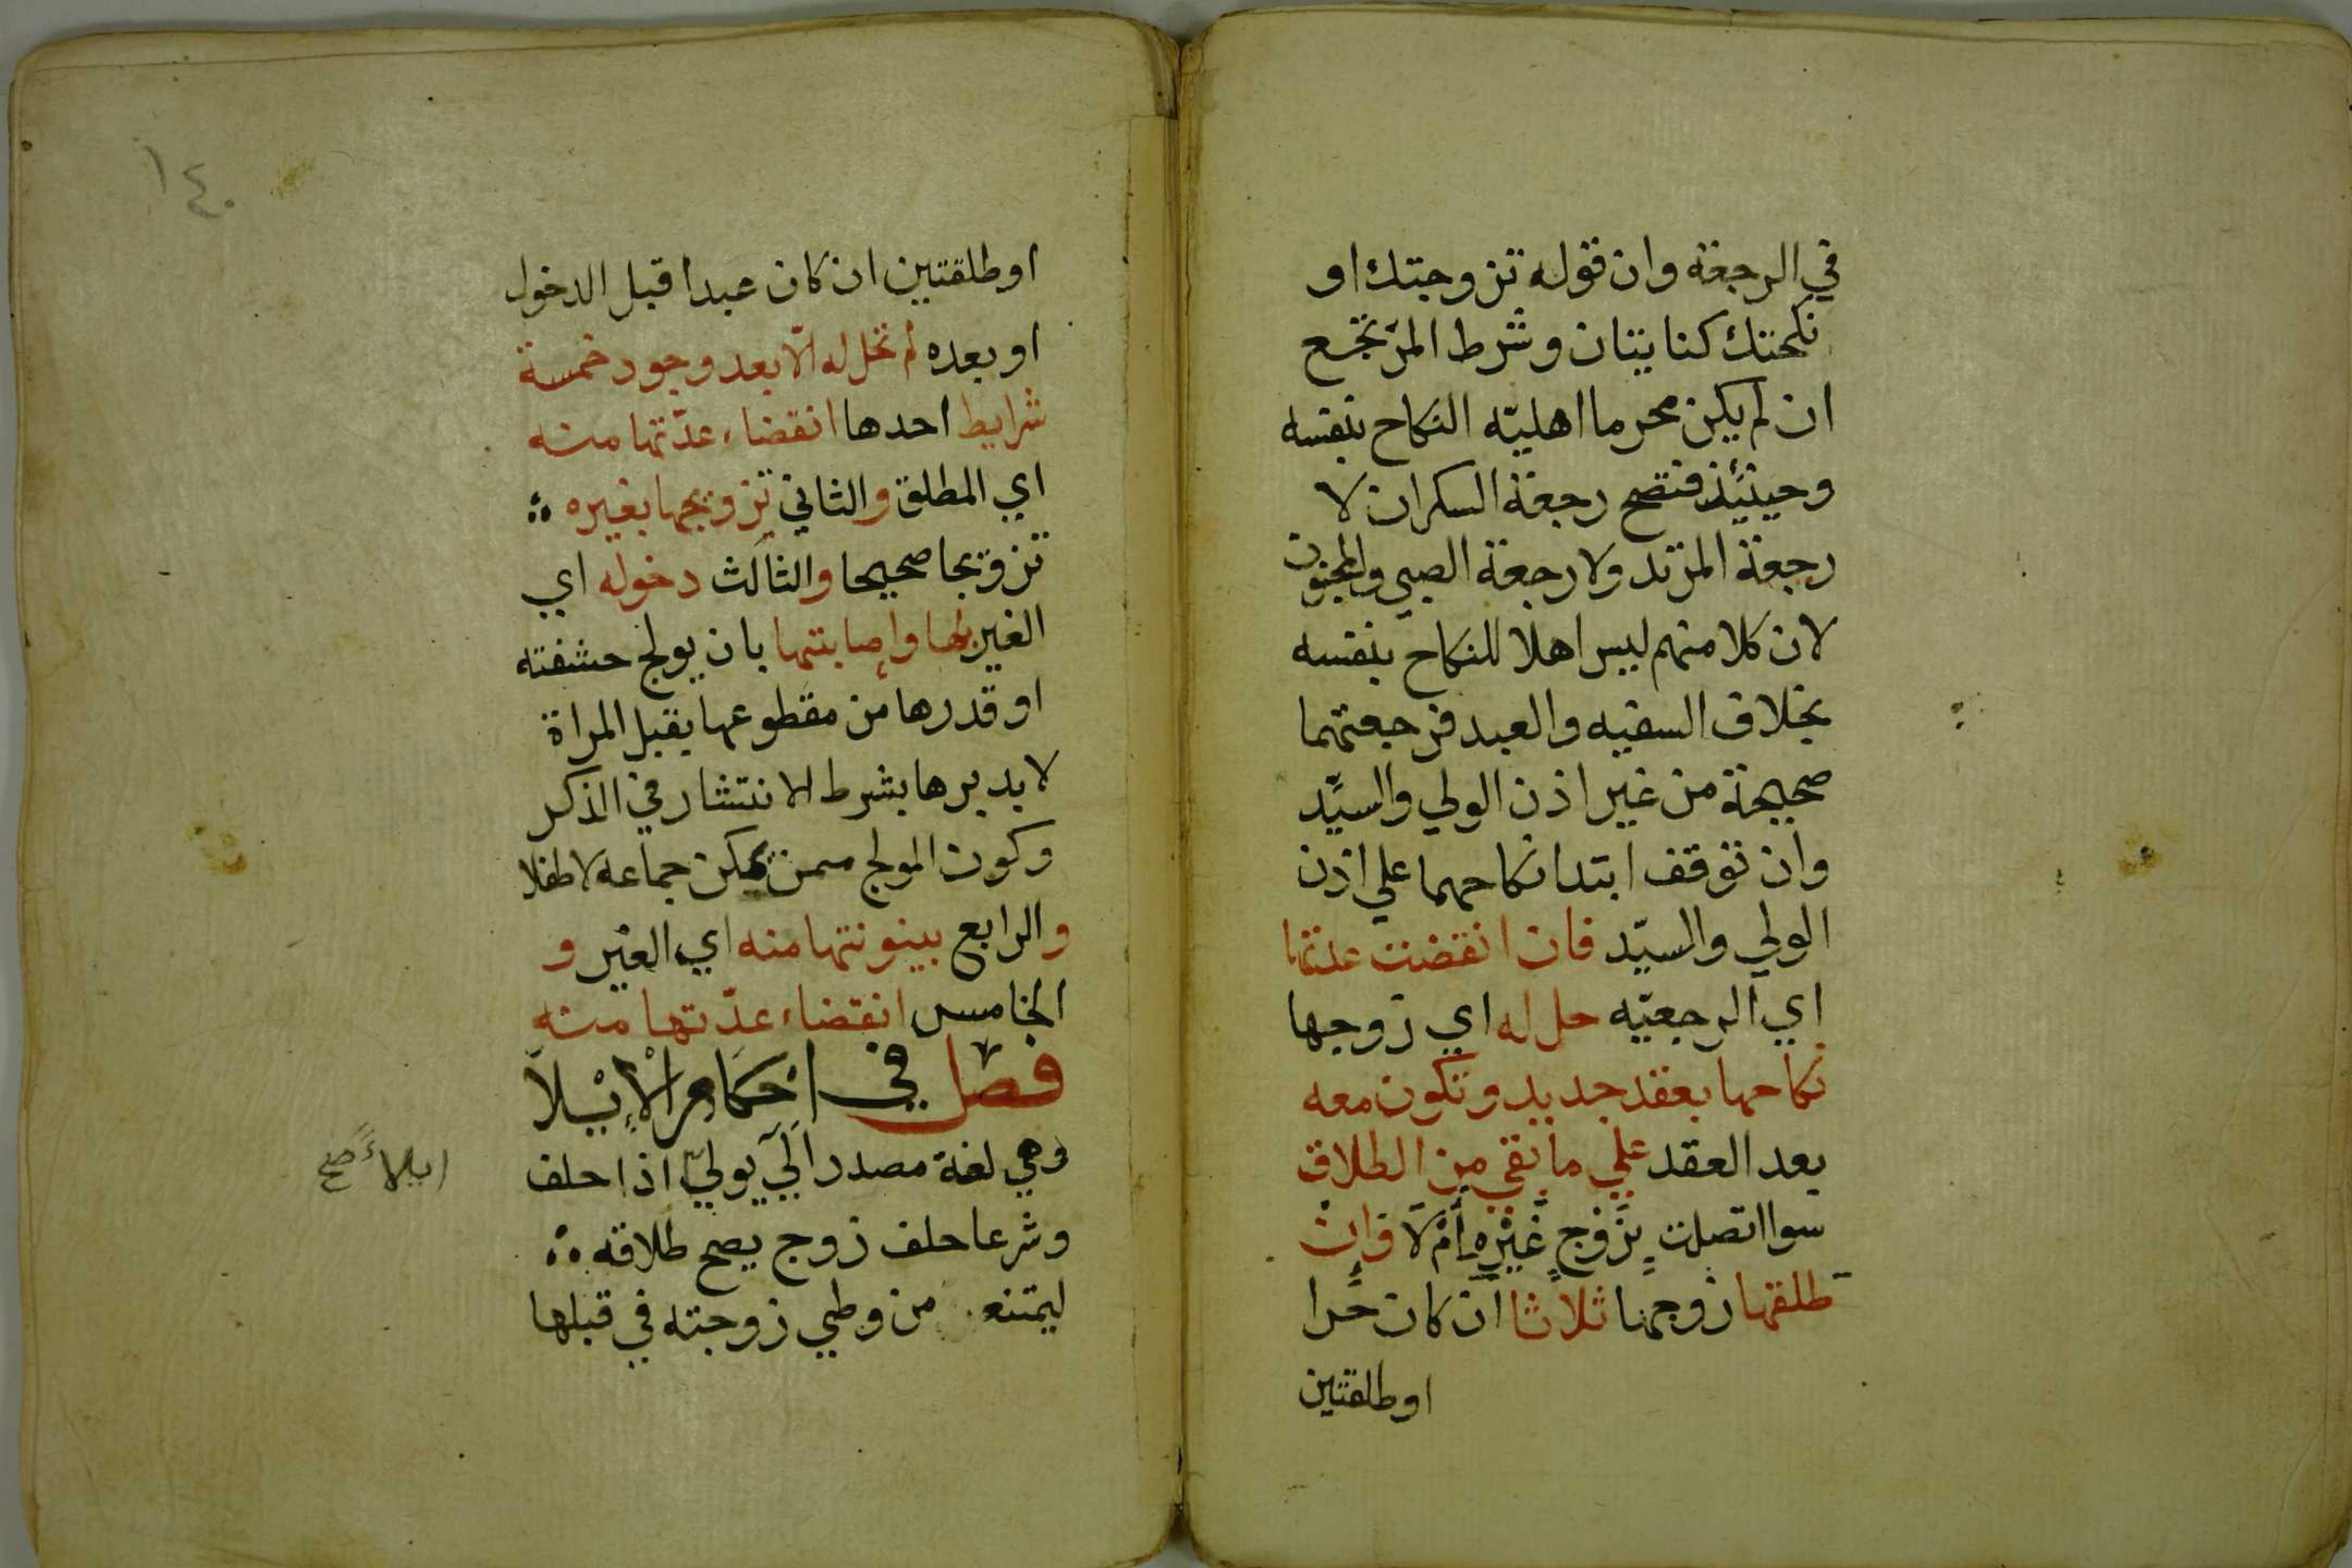 في الرجعة وان قوله تزوجتك او
نكحتك كنايتان وشرط المرتجع
ان لم يكن محرما اهليّه النكاح بنفسه
وحينئذ فتصح رجعة السكران لا
رجعة المرتد ولا رجعة الصبي والمجنون
لان كلا منهم ليس اهلا للنكاح بنفسه
بخلاف السفيه والعبد فرجعتهما
صحيحة من غير اذن الولي والسيّد
وان توقف ابتدا نكاحهما علي اذن
الولي والسيّد فان انقضت عدتها
اي الرجعيّه حل له اي زوجها
نكاحها بعقد جديد وتكون معه
بعد العقد علي ما بقي من الطلاق
سوا اتصلت بِزَوْجٍ غَيْرِهِ أَمْ لَا وَاِن
طلقها زوجها ثلاثا ان كان حُرا
او طلقتين
١٤٠
او طلقتين ان كان عبدا قبل الدخول
او بعده لم تحل له الّا بعد وجود خمسة
شرايط احدها انقضاء عدّتها منه
اي المطلق والثاني تزويجها بغيره
تزويجا صحيحا والثالث دخوله اي
الغير بها وإصابتها بان يولج حشفته
او قدرها من مقطوعها بقبل المراة
لا بدبرها بشرط الانتشار في الذكر
وكون المولج ممن يمكن جماعه لا طفلا
والرابع بينونتها منه اي الغير و
الخامس انقضاء عدّتها منه
فصل في احكام الإيلا
وهي لغة مصدر الي يولي اذا حلف
ايلاءً صح
وشرعا حلف زوج يصح طلاقه
ليمتنع من وطي زوجته في قبلها